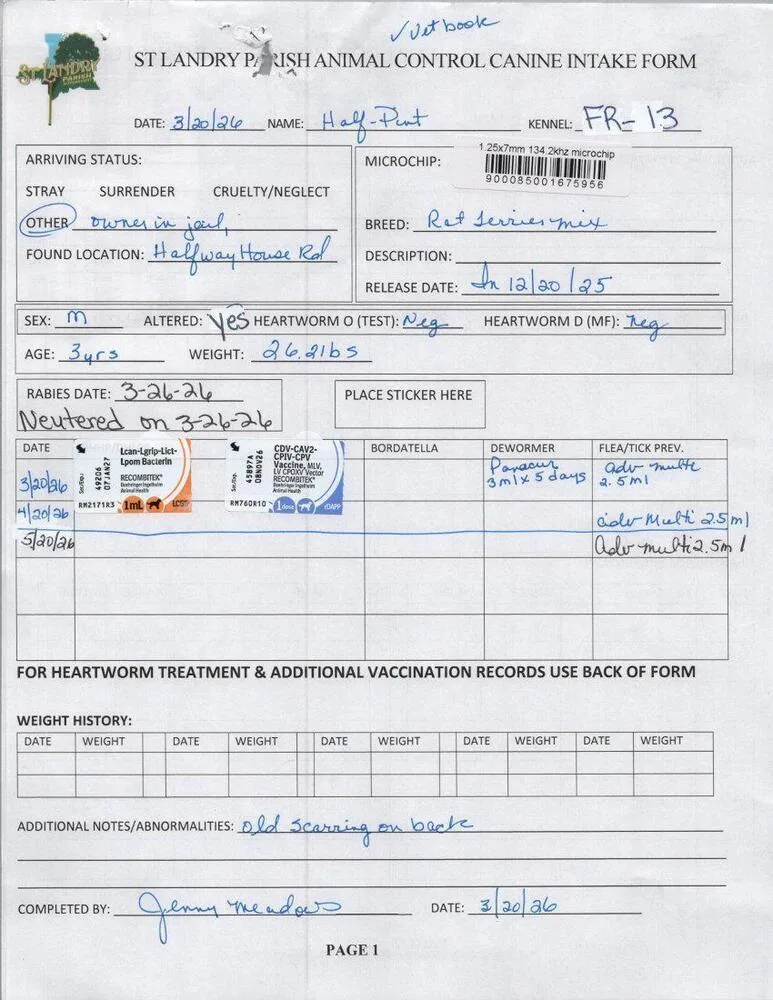 ✓ Vet book
ST LANDRY PARISH
ST LANDRY PARISH ANIMAL CONTROL CANINE INTAKE FORM
DATE: 3/20/26 NAME: Half-Pint KENNEL: FR-13
ARRIVING STATUS:
STRAY SURRENDER CRUELTY/NEGLECT
OTHER owner in jail,
FOUND LOCATION: Halfway House Rd
MICROCHIP:
1.25x7mm 134.2khz microchip
900085001675956
BREED: Rat Terrier mix
DESCRIPTION:
RELEASE DATE: In 12/20/25
SEX: M ALTERED: Yes HEARTWORM O (TEST): Neg HEARTWORM D (MF): Neg
AGE: 3yrs WEIGHT: 26.2lbs
RABIES DATE: 3-26-26
Neutered on 3-26-26
PLACE STICKER HERE
DATE BORDATELLA DEWORMER FLEA/TICK PREV.
3/20/26
Lcan-Lgrip-Lict-
Lpom Bacterin
RECOMBITEK
Boehringer Ingelheim
Animal Health
Ser./Exp.
49206
07JAN27
RM2171R3 1mL
CDV-CAV2-
CPIV-CPV
Vaccine, MLV,
LV CPOXV Vector
RECOMBITEK
Boehringer Ingelheim
Animal Health
Ser./Exp.
45897A
08NOV26
RM760R10 1 dose cDAPP
Panacur
3ml x 5 days
adv multi
2.5ml
4/20/26 adv Multi 2.5ml
5/20/26 Adv multi 2.5ml
FOR HEARTWORM TREATMENT & ADDITIONAL VACCINATION RECORDS USE BACK OF FORM
WEIGHT HISTORY:
DATE WEIGHT DATE WEIGHT DATE WEIGHT DATE WEIGHT DATE WEIGHT
ADDITIONAL NOTES/ABNORMALITIES: old scarring on back
COMPLETED BY: Jenny Meadows DATE: 3/20/26
PAGE 1